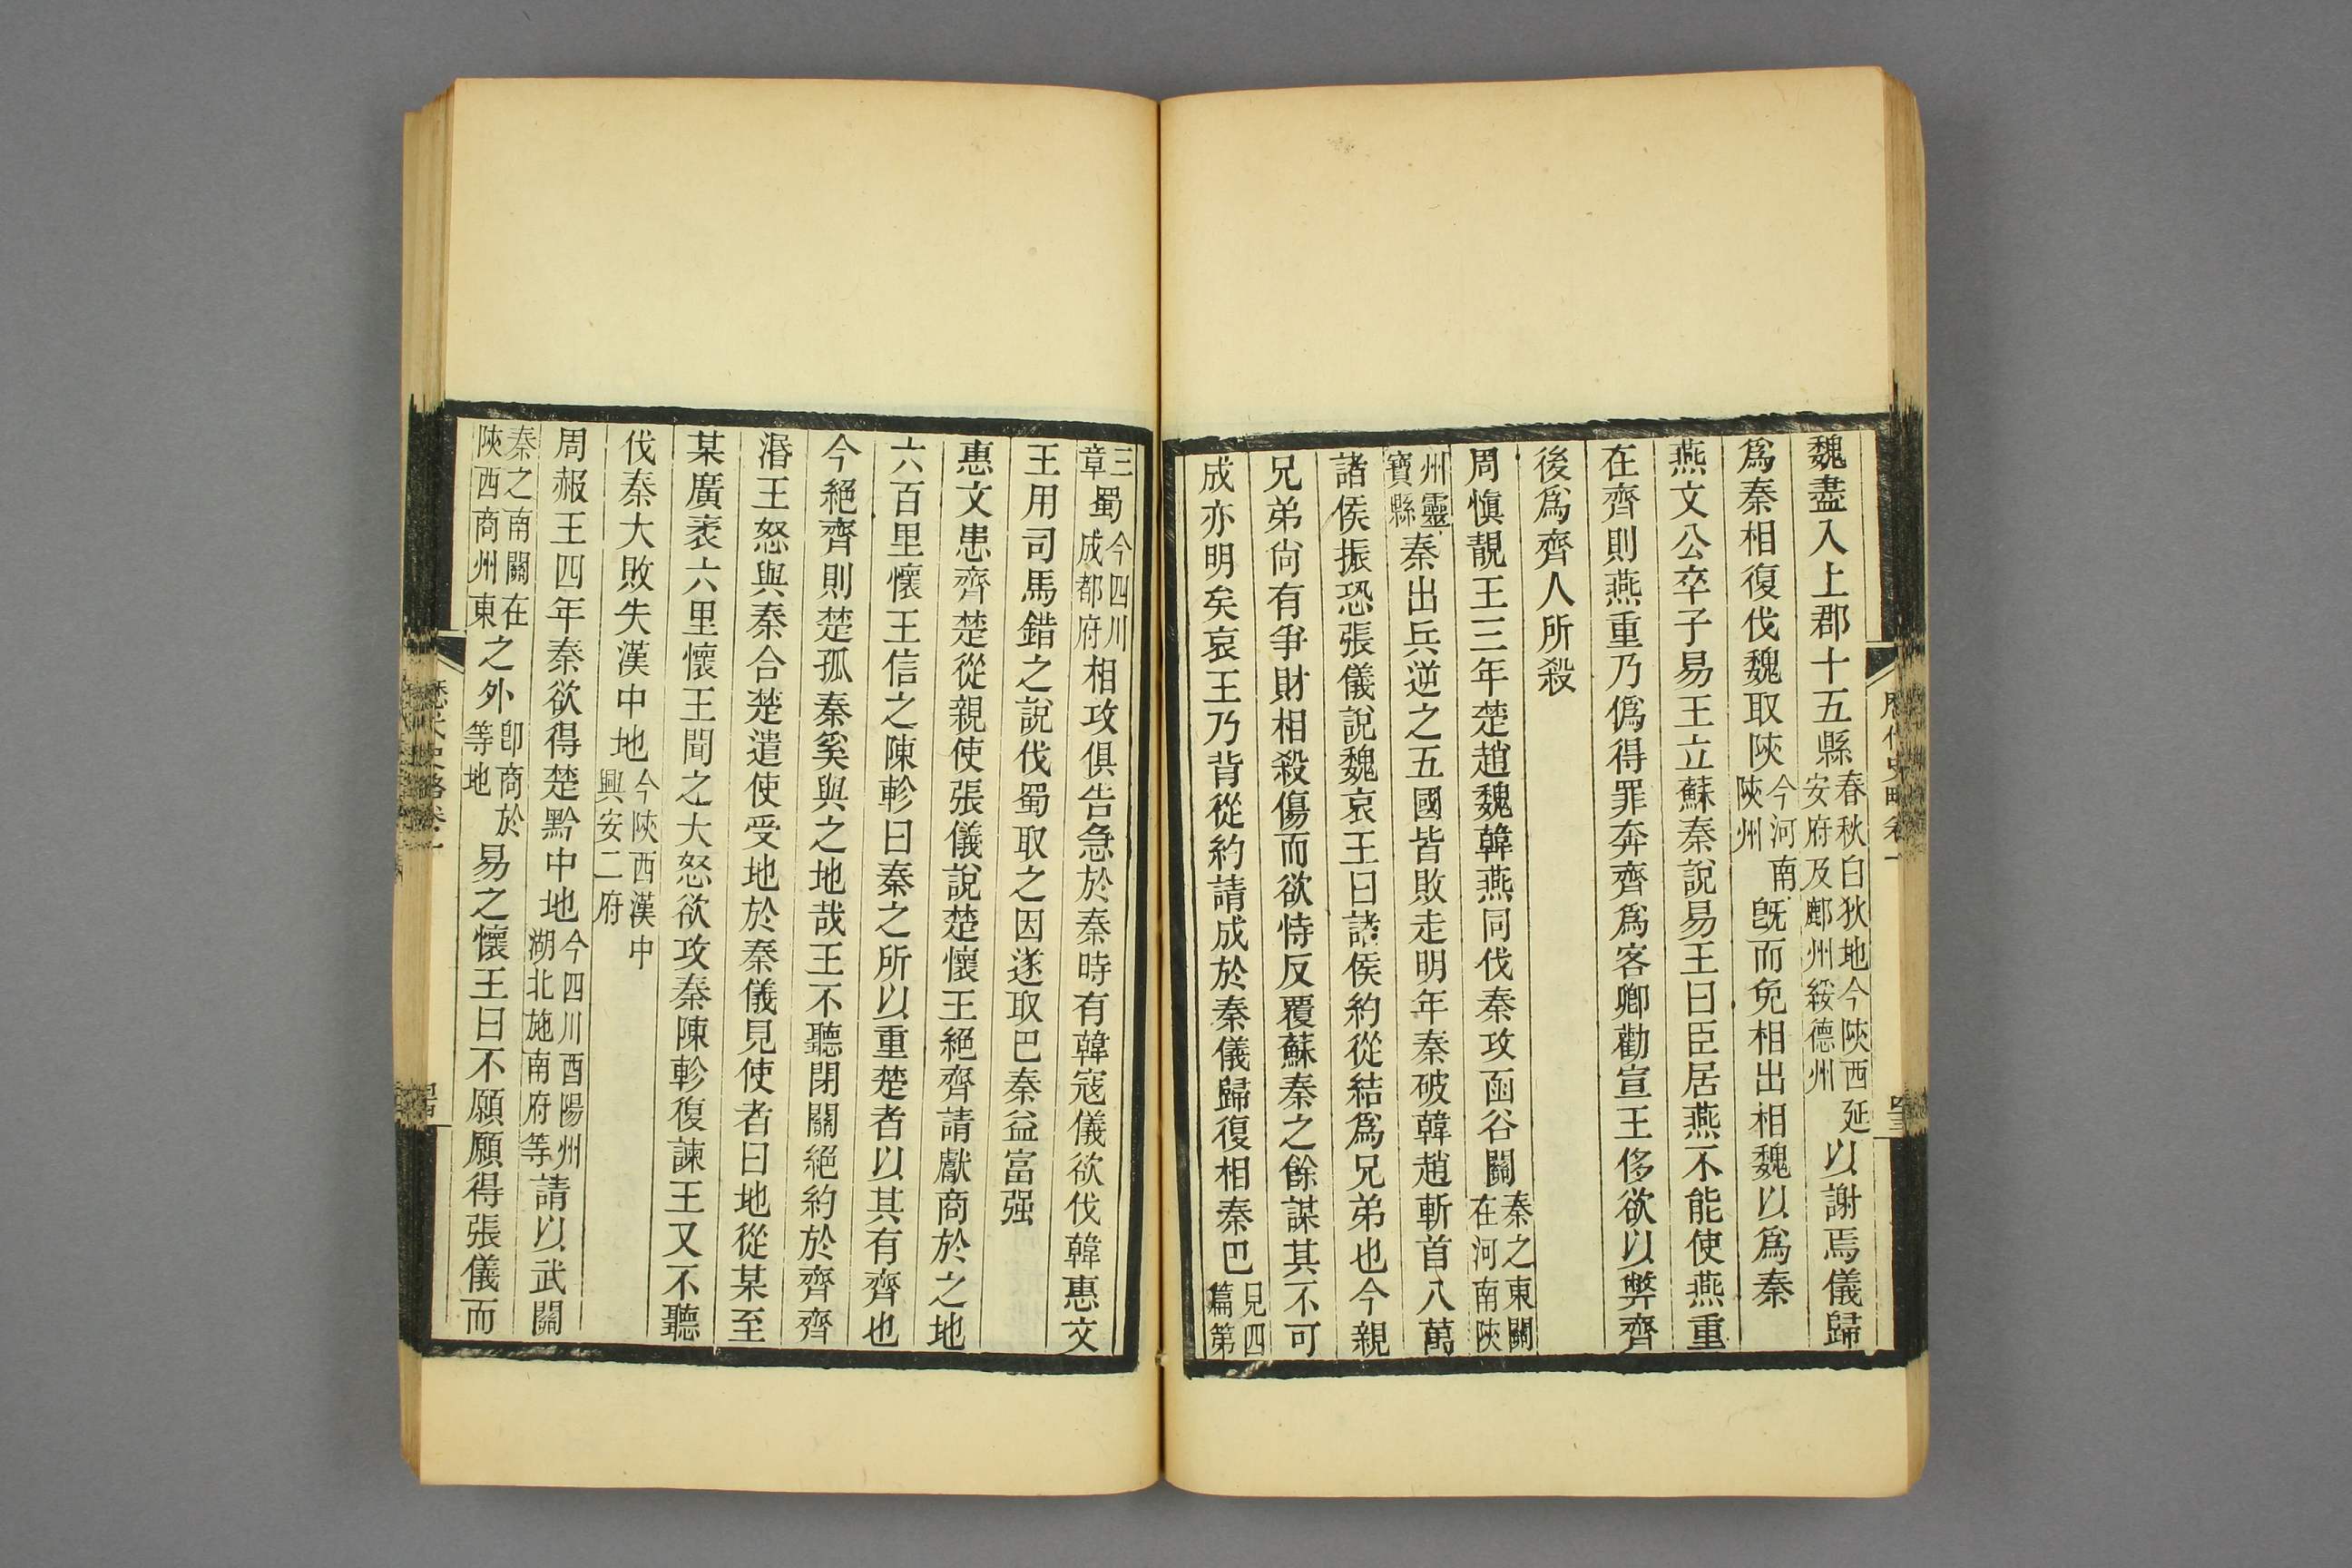 魏盡入上郡十五縣春秋白狄地今陝西延安府及鄜州綏德州以謝焉儀歸
爲秦相復伐魏取陝今河南陝州旣而免相出相魏以爲秦
燕文公卒子易王立蘇秦說易王曰臣居燕不能使燕重
在齊則燕重乃僞得罪奔齊爲客卿勸宣王侈欲以弊齊
後爲齊人所殺
周愼靚王三年楚趙魏韓燕同伐秦攻函谷關秦之東關在河南陝
州靈寶縣秦出兵逆之五國皆敗走明年秦破韓趙斬首八萬
諸侯振恐張儀說魏哀王曰諸侯約從結爲兄弟也今親
兄弟尙有爭財相殺傷而欲恃反覆蘇秦之餘謀其不可
成亦明矣哀王乃背從約請成於秦儀歸復相秦巴見四篇第
三章蜀今四川成都府相攻俱告急於秦時有韓寇儀欲伐韓惠文
王用司馬錯之說伐蜀取之因遂取巴秦益富强
惠文患齊楚從親使張儀說楚懷王絕齊請獻商於之地
六百里懷王信之陳軫曰秦之所以重楚者以其有齊也
今絕齊則楚孤秦奚與之地哉王不聽閉關絕約於齊齊
湣王怒與秦合楚遣使受地於秦儀見使者曰地從某至
某廣袤六里懷王聞之大怒欲攻秦陳軫復諫王又不聽
伐秦大敗失漢中地今陝西漢中興安二府
周赧王四年秦欲得楚黔中地今四川酉陽州湖北施南府等請以武關
秦之南關在陝西商州東之外卽商於等地易之懷王曰不願願得張儀而